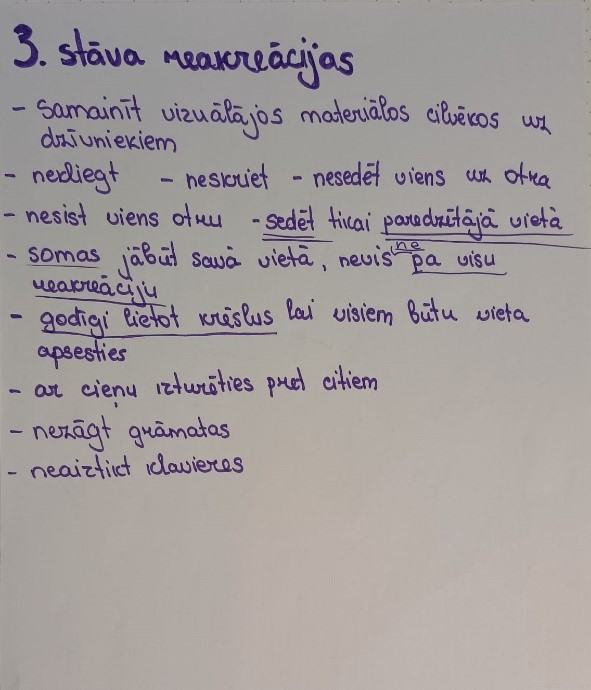 3. stāva reakreācijas
- Samainīt vizuālajos materiālos cilvēkos uz
dzīvniekiem
- nekliegt - neskriet - nesedēt viens uz otra
- nesist viens otru - sedēt tikai paredzētājā vietā
- somas jābūt savā vietā, nevis ne pa visu
reakreāciju
- godīgi lietot krēslus lai visiem būtu vieta
apsesties
- ar cieņu izturēties pret citiem
- nezāgt grāmatas
- neaiztikt klavieres